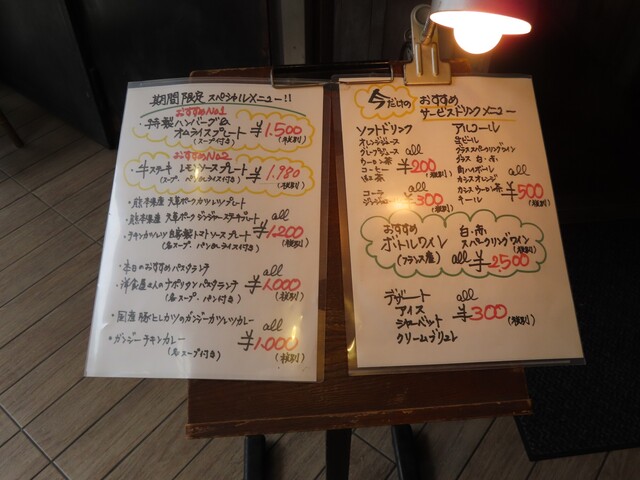 期間限定 スペシャルメニュー!!
おすすめNo.1
・特製ハンバーグ&
オムライスプレート ¥1,500
(スープ付き) (税別)
おすすめNo.2
・牛ステーキ レモンソースプレート ¥1,980
(スープ・パンorライス付き) (税別)
・熊本県産 大阿蘇ポークカツレツプレート
・熊本県産 大阿蘇ポークジンジャーステーキプレート all
・チキンカツレツ 自家製トマトソースプレート ¥1,200
(各スープ・パンorライス付き) (税別)
・本日のおすすめパスタランチ all
・洋食屋さんのナポリタンパスタランチ ¥1,000
(各スープ・パン付き) (税別)
・国産豚ヒレカツのガンジーカツレツカレー all
・ガンジーチキンカレー ¥1,000
(各スープ付き) (税別)
今だけの おすすめ
サービスドリンクメニュー
ソフトドリンク
オレンジジュース
グレープジュース all
ウーロン茶 ¥200
コーヒー (税別)
紅茶
コーラ all
ジンジャーエール ¥300
(税別)
アルコール
生ビール
グラススパークリングワイン
グラス 白・赤
角ハイボール all
カシスオレンジ
カシスウーロン茶 ¥500
キール (税別)
おすすめ 白・赤
ボトルワイン スパークリングワイン
(フランス産) all ¥2,500 (税別)
デザート all
アイス ¥300
シャーベット (税別)
クリームブリュレ